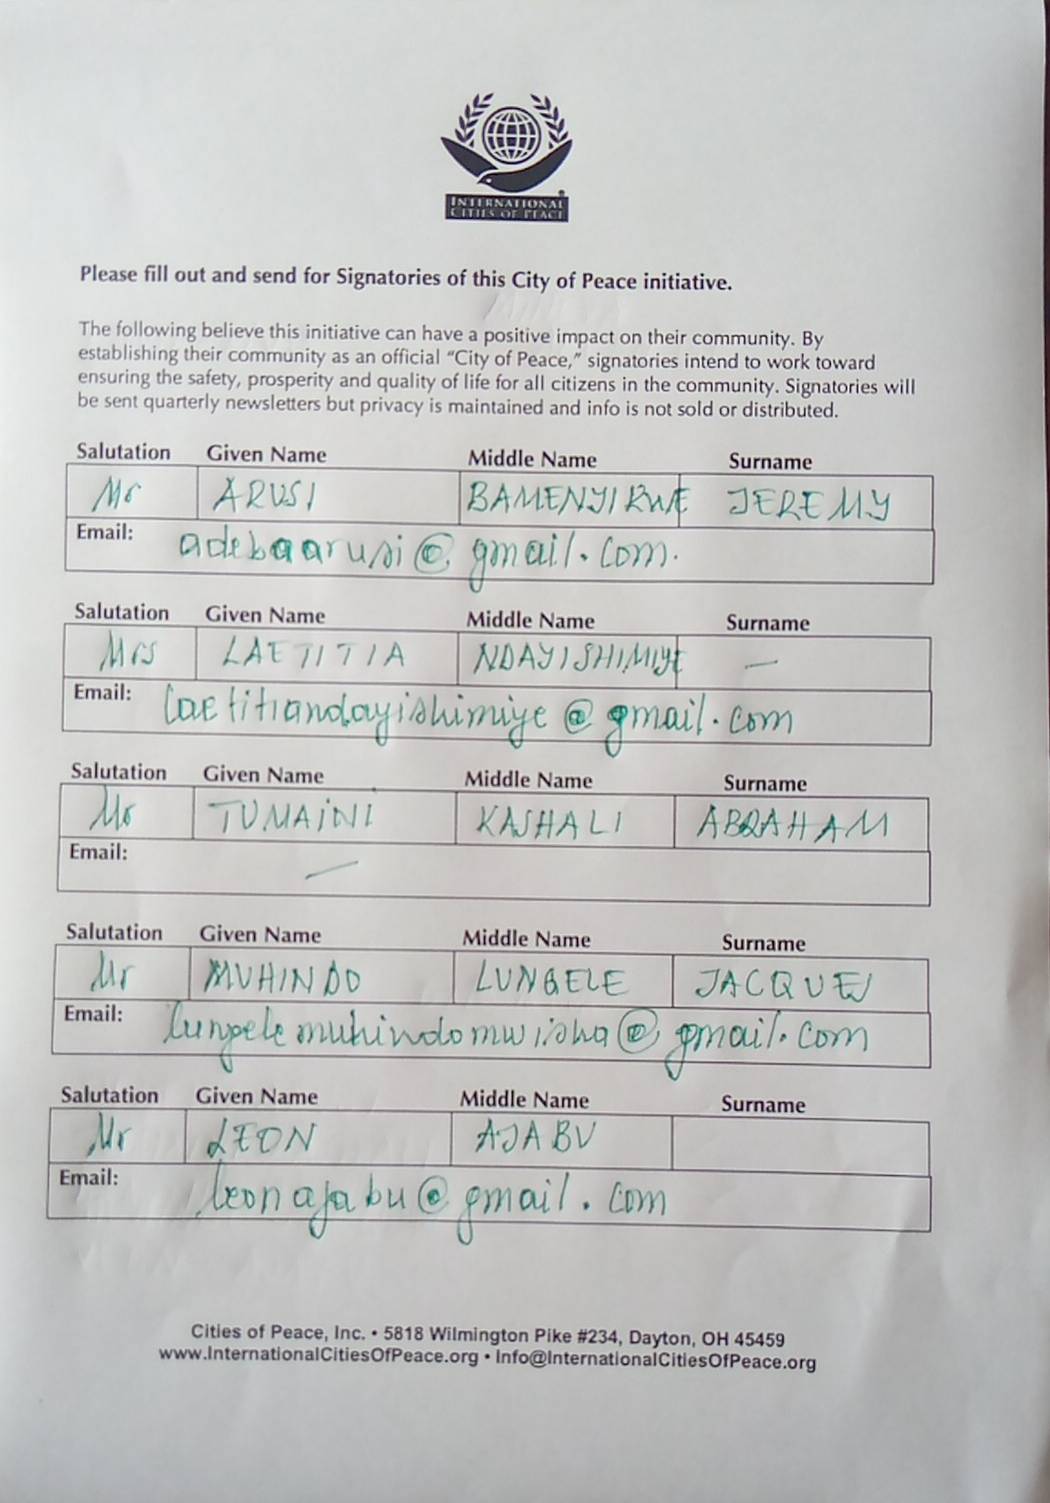 INTERNATIONAL
CITIES OF PEACE
Please fill out and send for Signatories of this City of Peace initiative.
The following believe this initiative can have a positive impact on their community. By
establishing their community as an official “City of Peace,” signatories intend to work toward
ensuring the safety, prosperity and quality of life for all citizens in the community. Signatories will
be sent quarterly newsletters but privacy is maintained and info is not sold or distributed.
Salutation Given Name Middle Name Surname
Mr ARUSI BAMENYIRWE JEREMY
Email: adebaarusi@gmail.com.
Salutation Given Name Middle Name Surname
Mrs LAETITIA NDAYISHIMIYE —
Email: laetitiandayishimiye@gmail.com
Salutation Given Name Middle Name Surname
Mr TUMAINI KASHALI ABRAHAM
Email: —
Salutation Given Name Middle Name Surname
Mr MUHINDO LUNGELE JACQUES
Email: lungelemuhindomwisha@gmail.com
Salutation Given Name Middle Name Surname
Mr LEON AJABU
Email: leonajabu@gmail.com
Cities of Peace, Inc. • 5818 Wilmington Pike #234, Dayton, OH 45459
www.InternationalCitiesOfPeace.org • Info@InternationalCitiesOfPeace.org